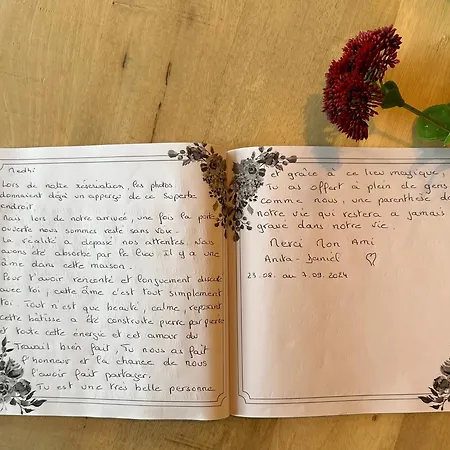 Medhi
Lors de notre réservation, les photos
donnaient déjà un apperçu de ce superbe
endroit.
Mais lors de notre arrivée, une fois la porte
ouverte nous sommes resté sans voix.
La réalité a dépassé nos attentes. Nous
avons été absorbé par le lieu. Il y a une
âme dans cette maison.
Pour t'avoir rencontré et longuement discuté
avec toi, cette âme c'est tout simplement
toi. Tout n'est que beauté, calme, reposant
cette bâtisse a été construite pierre par pierre
et toute cette énergie et cet amour du
Travail bien fait, Tu nous as fait
l'honneur et la chance de nous
l'avoir fait partager.
Tu est une très belle personne
et grâce à ce lieu magique,
Tu as offert à plein de gens
comme nous, une parenthèse de
notre vie qui restera a jamais
gravé dans notre vie.
Merci Mon Ami
Anita - Daniel
23.08. au 7.09.2024